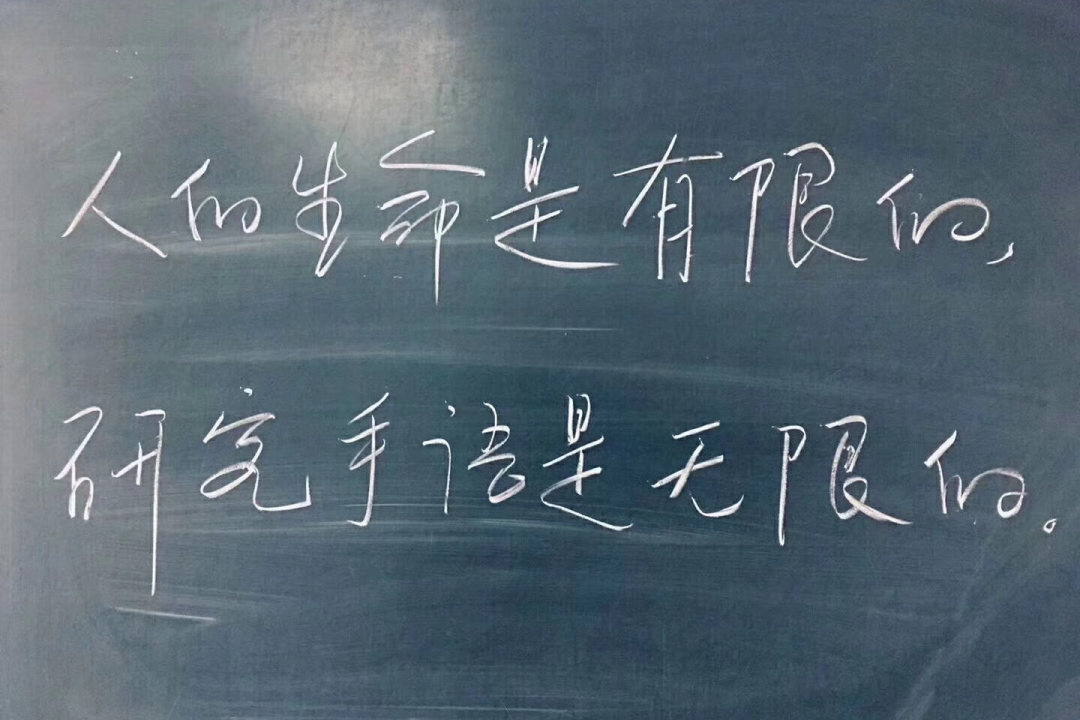 人的生命是有限的,
研究手语是无限的。